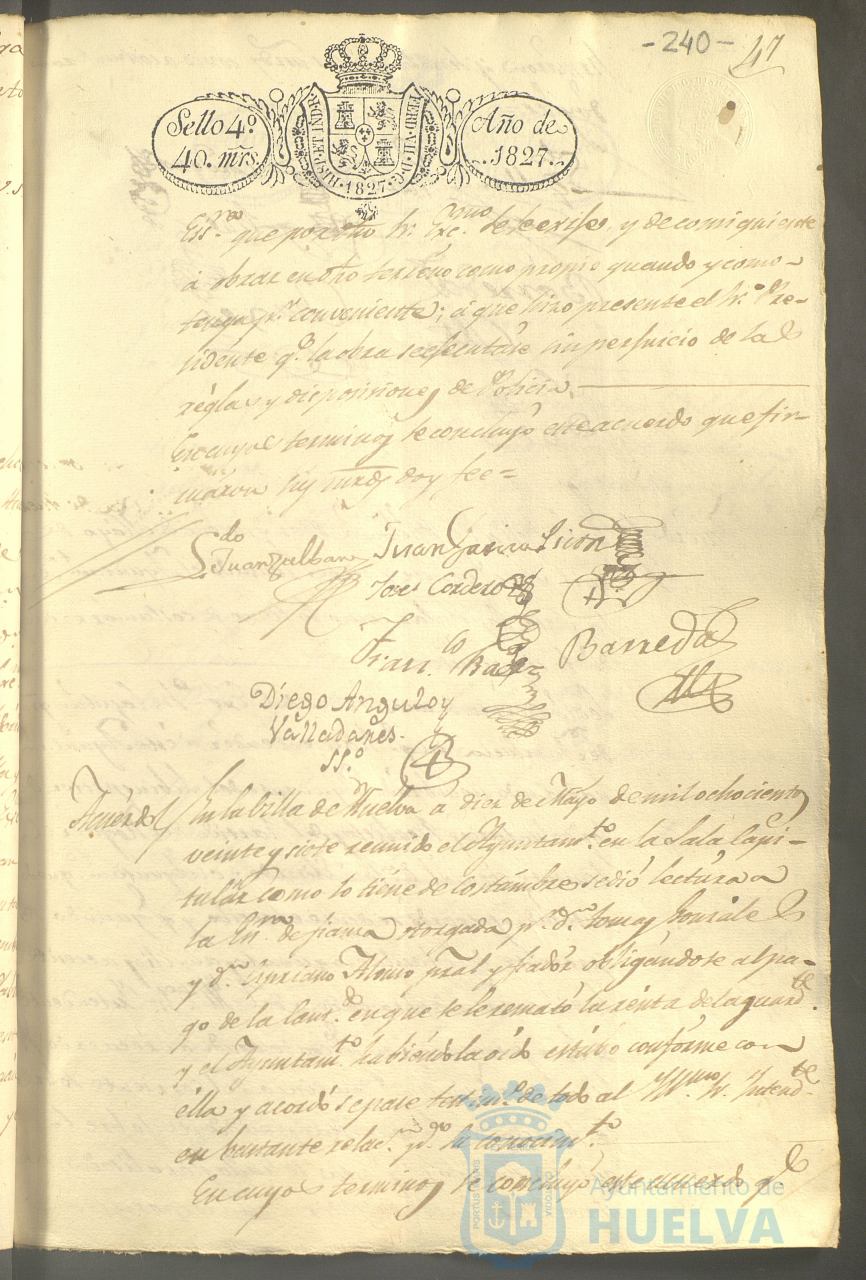 -240- 47
Sello 4º
40. mrs.
HISP. ET IND. R.
FERD. VII. D. G.
·1827·
Año de
1827.
Essno que por dho Sr. Excmo y de consiguiente
á obrar en dho terreno como propio quando y como
tenga pr. conveniente; á que hizo presente el Sr. Pre-
sidente qe. la obra se executáse sin perjuicio de las
réglas y disposiciones de Policia.
En cuyos terminos se concluyó este acuerdo que fir-
máron sus mrds doy fee =
Ldo Juan Zalbana Juan Garcia
Jose Cordero
Franco Baez Barreda
Diego Angulo y
Valladares
SSº
Acuérdo En la billa de Huelva á diez de Mayo de mil ochocientos
veinte y siete reunido el Ayuntamto. en la Sala Capi-
tulár como lo tiéne de costúmbre se dió lectúra a
la Esra. de fianza otorgada pr. dn. Tomas Gonzales
y dn. Cipriano Alonso pral y fiadór obligándose al pa-
go de la cantd. en que se le remató la rénta del aguardte.
y el Ayuntamto. habiéndola oido estubo confórme con
élla y acordó se pase testimo. de todo al Yllmo. Sr. Intendte.
en bastante relacn. pa. su conocimto.
En cuyos terminos se concluyó este acuerdo qe.
PORTUS MARIS
Ayuntamiento de
HUELVA